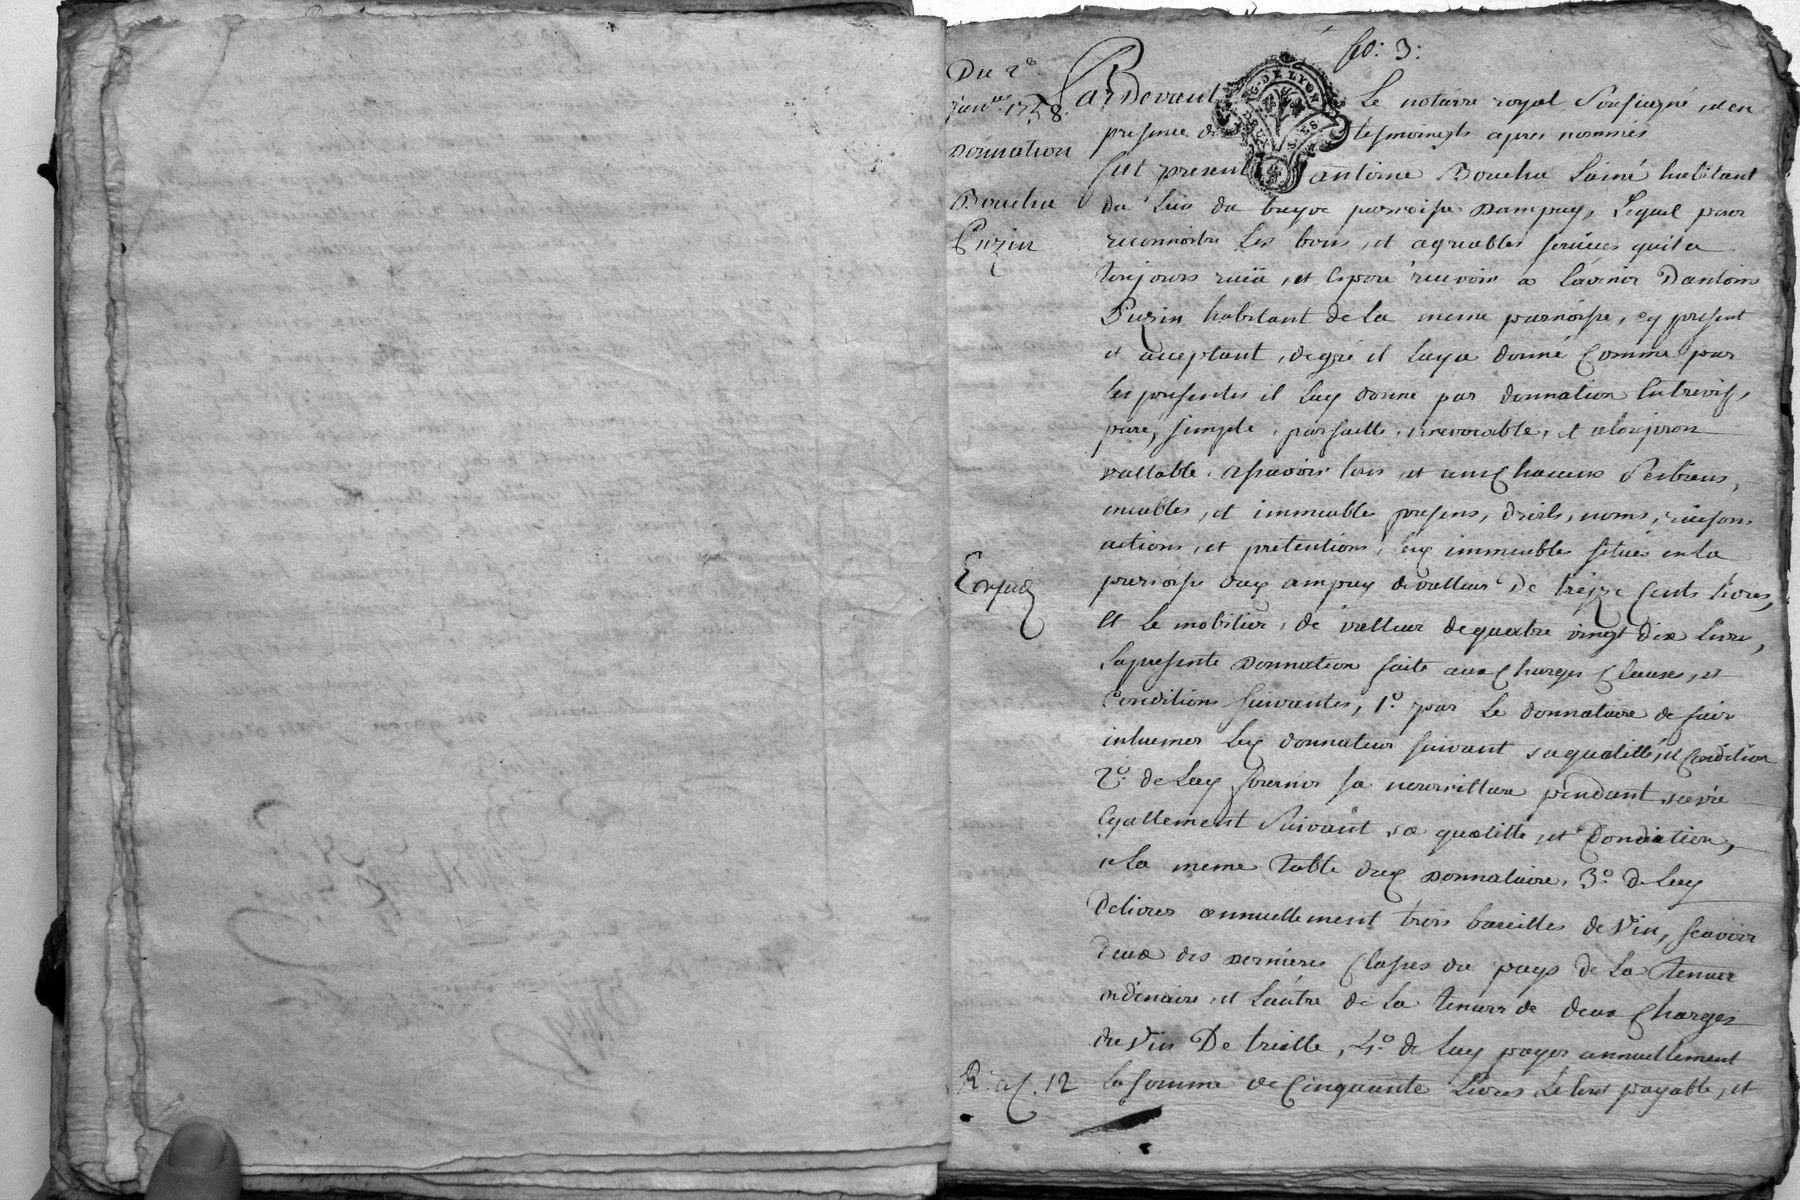 fol: 3:
Du 2e
janer 1758.
Donnation
Bouchu
Puzin
Expedié
R: a f. 12
G. DE LYON
DEUX SOLS
Pardevant Le notaire royal Soussigné, et en
presence des tesmoingts apres nommés
fut present antoine Bouchu Lainé habitant
du Lieu du bayoe parroisse Dampuy, Lequel pour
reconnoitre Les bons, et agreables services quil a
toujours reciü, et Espere recevoir a Lavenir Dantoine
Puzin habitant de La meme parroisse, cy present
et acceptant, de gré il Luy a donné Comme par
Les presentes il Luy donne par donnation Entrevifs,
pure, simple, parfaitte, irrevocable, et a toujours
vallable, assavoir tous, et uns Chacuns Ses biens,
meubles, et immeubles presens, droits, noms, raisons
actions, et pretentions, Les immeubles situés en La
parroisse dud ampuy de valleur De treize Cents Livres,
Et Le mobilier, de valleur de quatre vingt dix Livres,
La presente Donnation faite aux Charges Clauses, et
Conditions Suivantes, 1o. par Le donnataire de faire
inhumer Led donnateur suivant sa qualitté, et Condition
2o. de Luy fournir sa nourritture pendant sa vie
Egallement Suivant sa qualitté, et Condiction,
a La meme Table dud Donnataire, 3o. de Luy
delivrer annuellement trois bareilles de Vin, scavoir
deux des Dernieres Classes du pays de La Tenuer
ordinaire, et Lautre de La tenuer de deux Charges
de Vin De treille, 4o. de Luy payer annuellement
La somme de Cinquante Livres Le tout payable, et